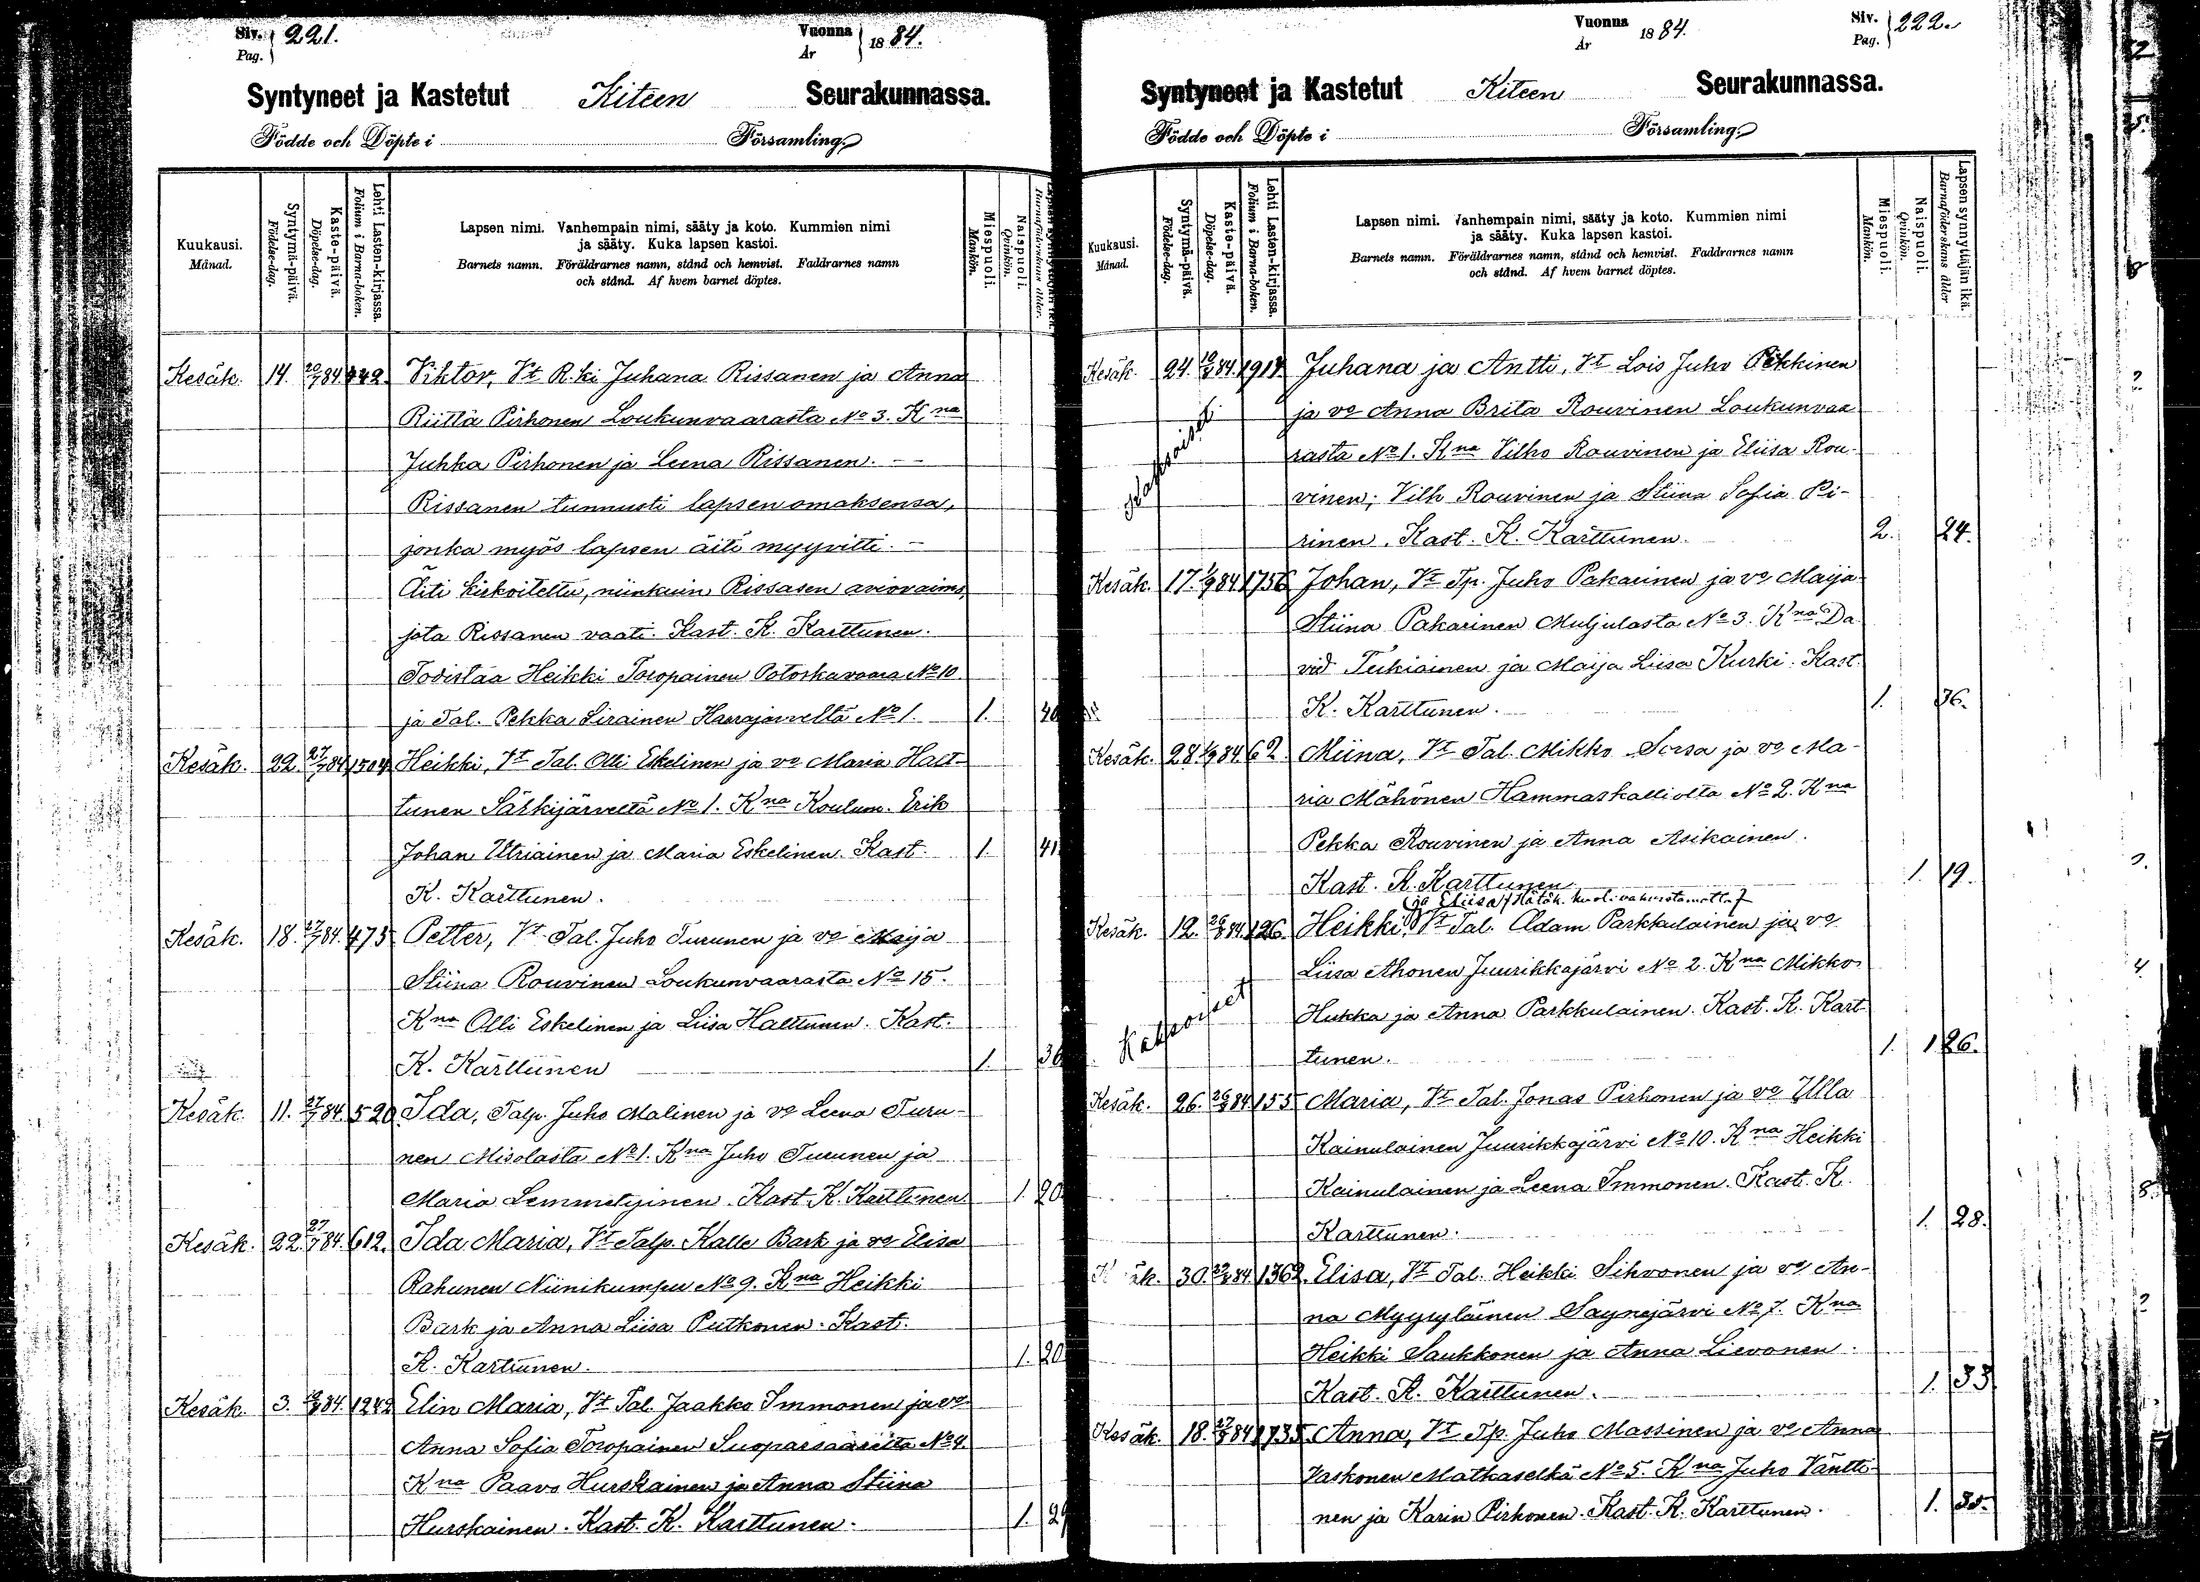 Siv. Pag. } 221.
Vuonna År } 1884.
Syntyneet ja Kastetut Kiteen Seurakunnassa.
Födde och Döpte i Församling.
Kuukausi. Månad.
Syntymä-päivä. Födelse-dag.
Kaste-päivä. Döpelse-dag.
Lehti Lasten-kirjassa. Folium i Barna-boken.
Lapsen nimi. Vanhempain nimi, sääty ja koto. Kummien nimi
ja sääty. Kuka lapsen kastoi.
Barnets namn. Föräldrarnes namn, stånd och hemvist. Faddrarnes namn
och stånd. Af hvem barnet döptes.
Miespuoli. Mankön.
Naispuoli. Qvinkön.
Kesäk. 14. 20/7 84 Viktor, Vt R.ki Juhana Rissanen ja Anna
Riitta Pirhonen Loukunvaarasta No 3. Kna
Juhka Pirhonen ja Leena Rissanen. -
Rissanen tunnusti lapsen omaksensa,
jonka myös lapsen äiti myyvitti. -
Äiti kirkoitettu, niinkuin Rissasen aviovaimo,
jota Rissanen vaati. Kast. K. Karttunen.
Todistaa Heikki Toropainen Potoskavaara No 10
ja Tal. Pekka Sirainen Haarajärveltä No 1. 1. 40
Kesäk. 22. 27/7 84 1504 Heikki, Vt Tal. Olli Eskelinen ja vo Maria Halt-
tunen Särkijärveltä No 1. Kna Koulum. Erik
Johan Utriainen ja Maria Eskelinen. Kast. 1. 41
K. Karttunen.
Kesäk. 18. 27/7 84. 473 Petter, Vt Tal. Juho Turunen ja vo Maija
Stiina Rouvinen Loukunvaarasta No 15.
Kna Olli Eskelinen ja Liisa Halttunen. Kast.
K. Karttunen 1. 36
Kesäk. 11. 27/7 84. 520 Ida, Talp. Juho Malinen ja vo Leena Turu-
nen Misolasta No 1. Kna Juho Turunen ja
Maria Lemmetyinen. Kast. K. Karttunen 1. 20
Kesäk. 22. 27/7 84. 612. Ida Maria, Vt Talp. Kalle Bark ja vo Elisa
Rahunen Niinikumpu No 9. Kna Heikki
Bark ja Anna Liisa Putkonen. Kast.
K. Karttunen. 1. 20
Kesäk. 3. 84. 1242 Elin Maria, Vt Tal. Jaakko Immonen ja vo
Anna Sofia Toropainen Suoparsaarelta No 4
Kna Paavo Hurskainen ja Anna Stiina
Hurskainen. Kast. K. Karttunen. 1. 29
Vuonna År 1884.
Siv. Pag. } 222.
Syntyneet ja Kastetut Kiteen Seurakunnassa.
Födde och Döpte i Församling.
Kuukausi. Månad.
Syntymä-päivä. Födelse-dag.
Kaste-päivä. Döpelse-dag.
Lehti Lasten-kirjassa. Folium i Barna-boken.
Lapsen nimi. Vanhempain nimi, sääty ja koto. Kummien nimi
ja sääty. Kuka lapsen kastoi.
Barnets namn. Föräldrarnes namn, stånd och hemvist. Faddrarnes namn
och stånd. Af hvem barnet döptes.
Miespuoli. Mankön.
Naispuoli. Qvinkön.
Lapsen synnyttäjän ikä. Barnaföderskans ålder
Kesäk. 24. 84. Juhana ja Antti, Vt Lois Juho Pekkinen
ja vo Anna Brita Rouvinen Loukunvaa
rasta No 1. Kna Vilho Rouvinen ja Eliisa Rou-
vinen; Vilh Rouvinen ja Stiina Sofia Pi-
rinen. Kast. K. Karttunen. 2. 24.
Kaksoiset
Kesäk. 17. 84. 1756 Johan, Vt Tp. Juho Pakarinen ja vo Maija
Stiina Pakarinen Muljulasta No 3. Kna Da
vid Tukiainen ja Maija Liisa Kurki. Kast.
K. Karttunen. 1. 36.
Kesäk. 28. 84. 62. Miina, Vt Tal. Mikko Sorsa ja vo Ma-
ria Mähönen Hammaskalliolta No 2. Kna
Pekka Rouvinen ja Anna Asikainen.
Kast. K. Karttunen 1. 19.
(ja Eliisa) Hätäk. kuol. vahvistamatta
Kesäk. 12. 84. 126. Heikki, Vt Tal. Adam Parkkulainen ja vo
Liisa Ahonen Juurikkajärvi No 2. Kna Mikko
Hukka ja Anna Parkkulainen. Kast. K. Kart-
tunen. 1. 1 26.
Kaksoiset
Kesäk. 26. 84. 155 Maria, Vt Tal. Jonas Pirhonen ja vo Ulla
Kainulainen Juurikkajärvi No 10. Kna Heikki
Kainulainen ja Leena Immonen. Kast. K.
Karttunen. 1. 28.
Kesäk. 30. 84. 1362. Elisa, Vt Tal. Heikki Sihvonen ja vo An-
na Myyryläinen Saynejärvi No 7. Kna
Heikki Saukkonen ja Anna Lievonen.
Kast. K. Karttunen. 1. 33
Kesäk. 18. 84 1735 Anna, Vt Tp. Juho Massinen ja vo Anna
Vaskonen Matkaselkä No 5. Kna Juho Väntti-
nen ja Karin Pirhonen. Kast. K. Karttunen. 1.